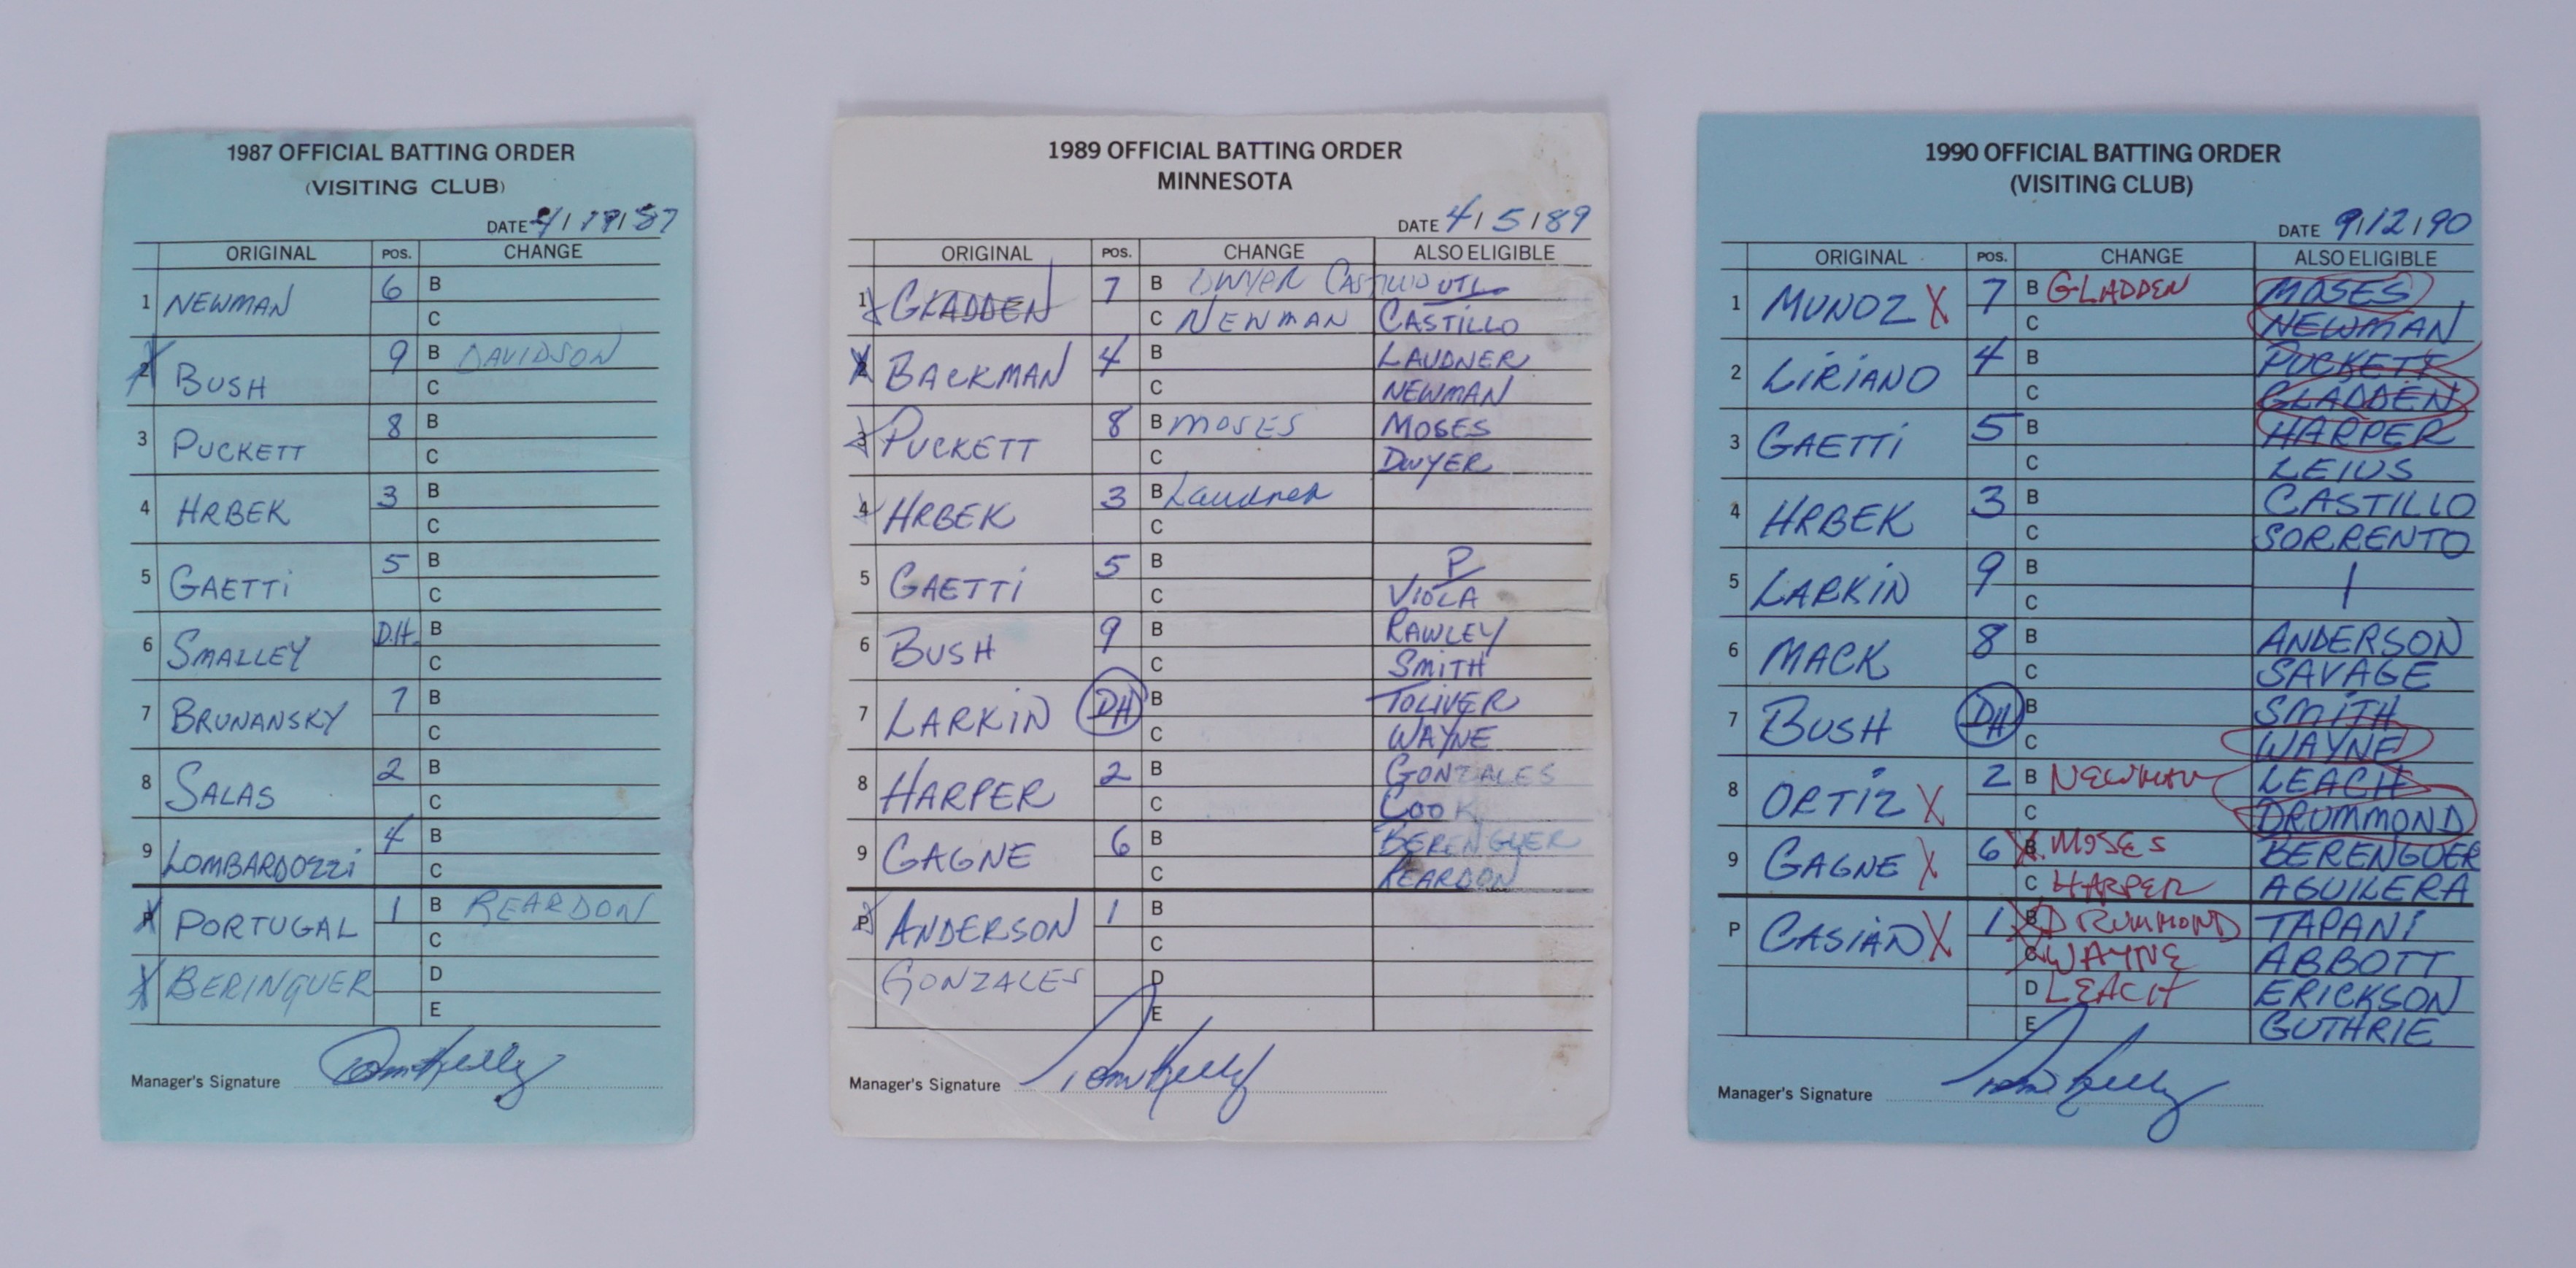 1987 OFFICIAL BATTING ORDER
(VISITING CLUB)
DATE 4/19/87
ORIGINAL POS. CHANGE
1 NEWMAN 6 B
C
2 BUSH 9 B DAVIDSON
C
3 PUCKETT 8 B
C
4 HRBEK 3 B
C
5 GAETTi 5 B
C
6 SMALLEY D.H. B
C
7 BRUNANSKY 7 B
C
8 SALAS 2 B
C
9 LOMBARDOZZi 4 B
C
P PORTUGAL 1 B REARDON
C
BERINGUER D
E
Manager's Signature Tom Kelly
1989 OFFICIAL BATTING ORDER
MINNESOTA
DATE 4/5/89
ORIGINAL POS. CHANGE ALSO ELIGIBLE
1 GLADDEN 7 B DWYER CASTILLO UTL
C NEWMAN CASTiLLO
2 BACKMAN 4 B LAUDNER
C NEWMAN
3 PUCKETT 8 B MOSES MOSES
C DWYER
4 HRBEK 3 B Laudner
C
5 GAETTi 5 B P
C VIOLA
6 BUSH 9 B RAWLEY
C SMiTH
7 LARKiN DH B TOLIVER
C WAYNE
8 HARPER 2 B GONZALES
C COOK
9 GAGNE 6 B BERENGUER
C REARDON
P ANDERSON 1 B
C
GONZALES D
E
Manager's Signature Tom Kelly
1990 OFFICIAL BATTING ORDER
(VISITING CLUB)
DATE 9/12/90
ORIGINAL POS. CHANGE ALSO ELIGIBLE
1 MUNOZ X 7 B GLADDEN MOSES
C NEWMAN
2 LiRiANO 4 B PUCKETT
C GLADDEN
3 GAETTi 5 B HARPER
C LEIUS
4 HRBEK 3 B CASTILLO
C SORRENTO
5 LARKiN 9 B
C
6 MACK 8 B ANDERSON
C SAVAGE
7 BUSH DH B SMiTH
C WAYNE
8 ORTiZ X 2 B NEWMAN LEACH
C DRUMMOND
9 GAGNE X 6 B MOSES BERENGUER
C HARPER AGUILERA
P CASiAN X 1 B DRUMMOND TAPANi
C WAYNE ABBOTT
D LEACH ERICKSON
E GUTHRIE
Manager's Signature Tom Kelly